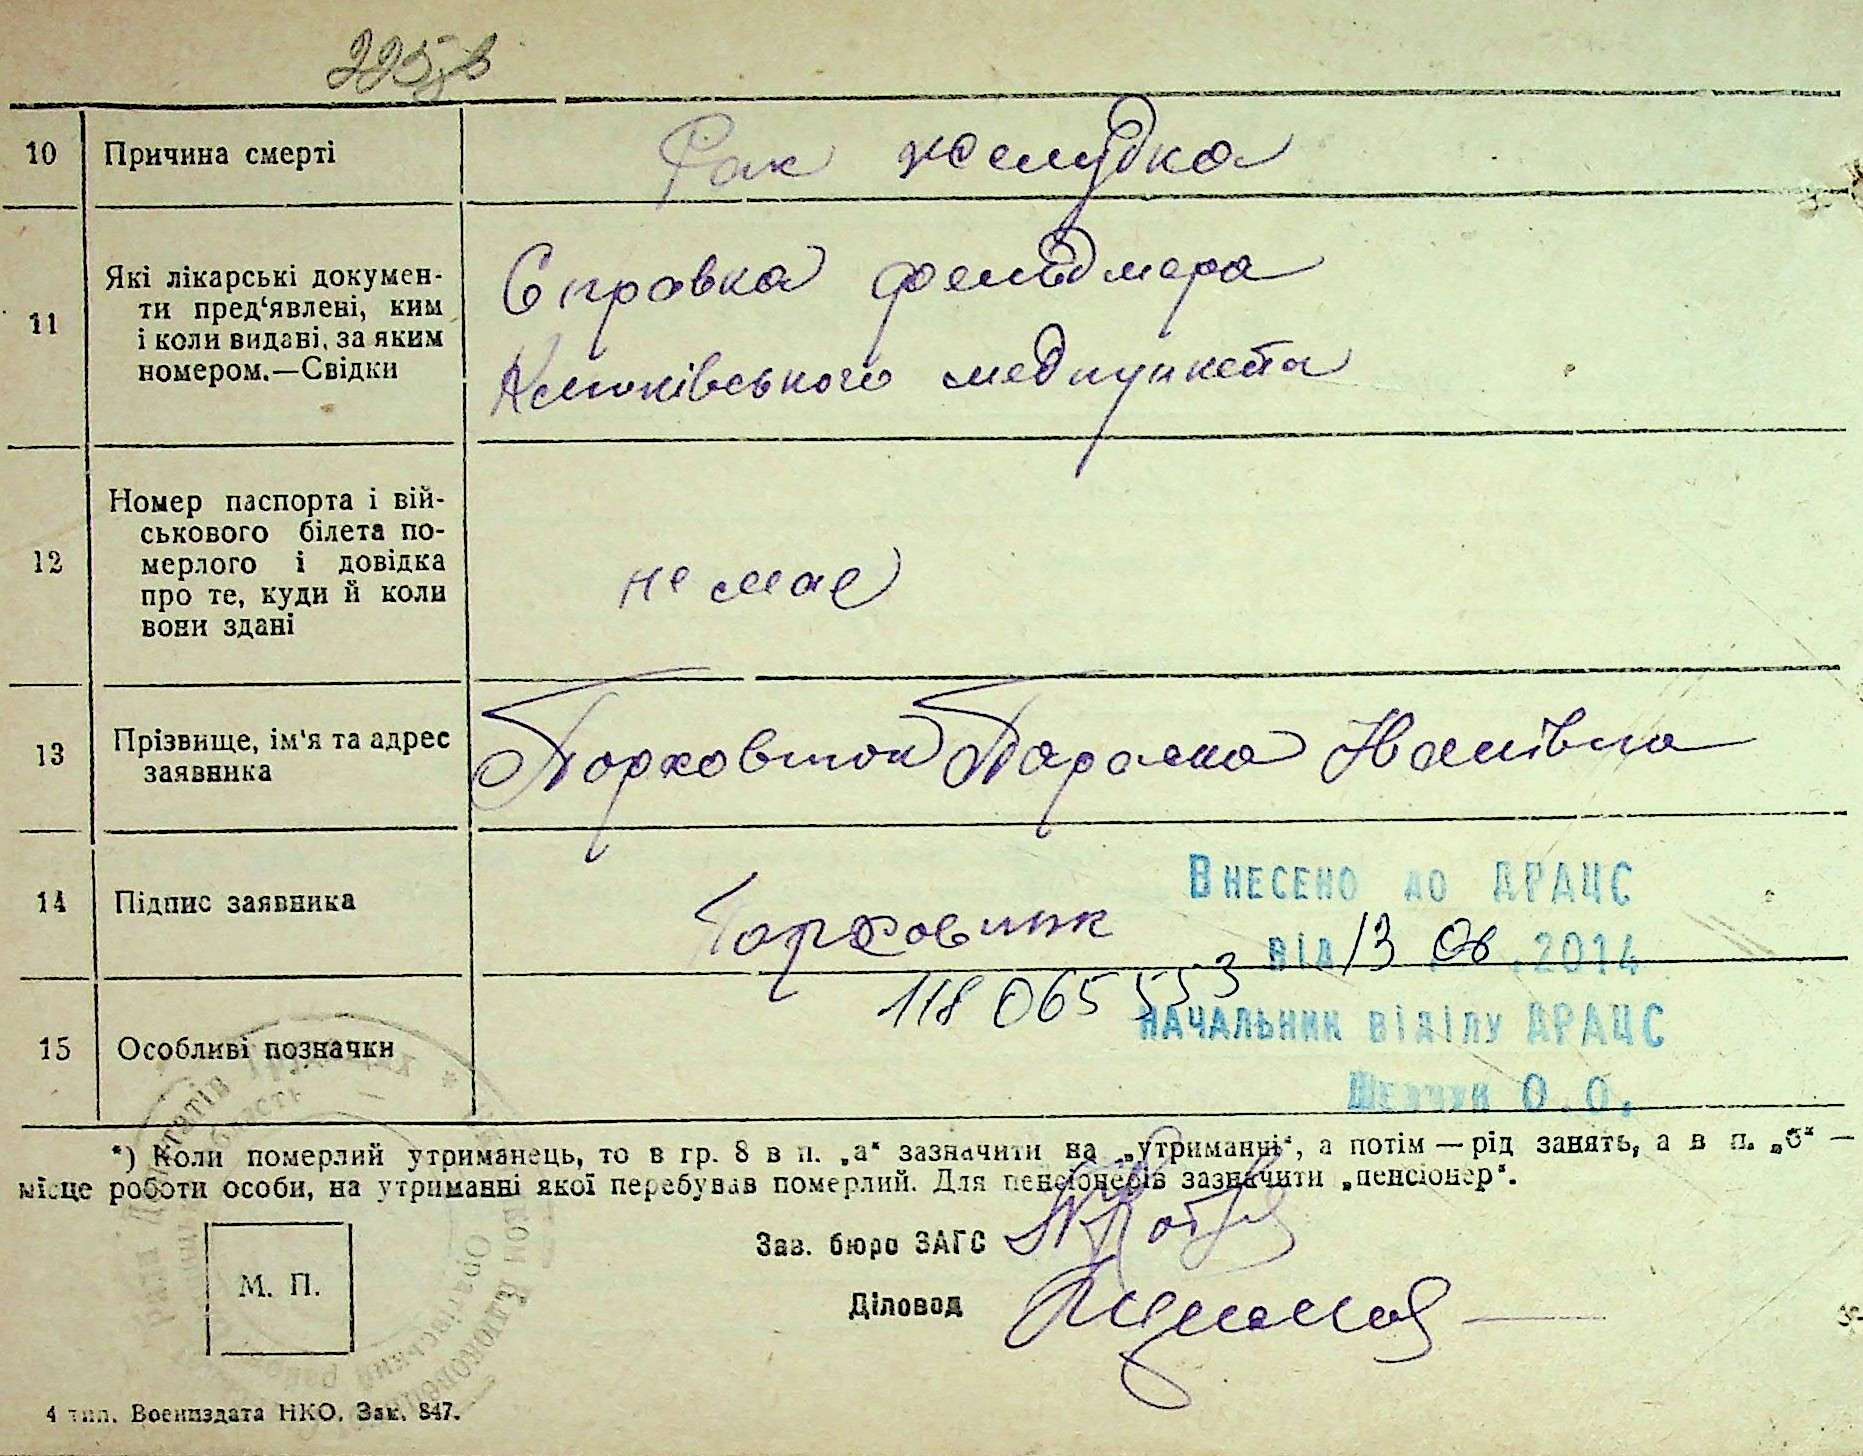 225зв
10 Причина смерті Рак желудка
11 Які лікарські докумен-
ти пред‘явлені, ким
і коли видані, за яким
номером.—Свідки
Справка фельдшера
Клюківського медпункта
12 Номер паспорта і вій-
ськового білета по-
мерлого і довідка
про те, куди й коли
вони здані
не має
13 Прізвище, ім‘я та адрес
заявника
Параска Іванівна
14 Підпис заявника
Внесено до ДРАЦС
від 13 06 .2014
118 065 553
Начальник відділу ДРАЦС
О.О.
15 Особливі позначки
*) Коли померлий утриманець, то в гр. 8 в п. „а“ зазначити на „утриманні“, а потім — рід занять, а в п. „б“ —
місце роботи особи, на утриманні якої перебував померлий. Для пенсіонерів зазначити „пенсіонер“.
Зав. бюро ЗАГС
Діловод
М. П.
4 тип. Воениздата НКО. Зак. 847.